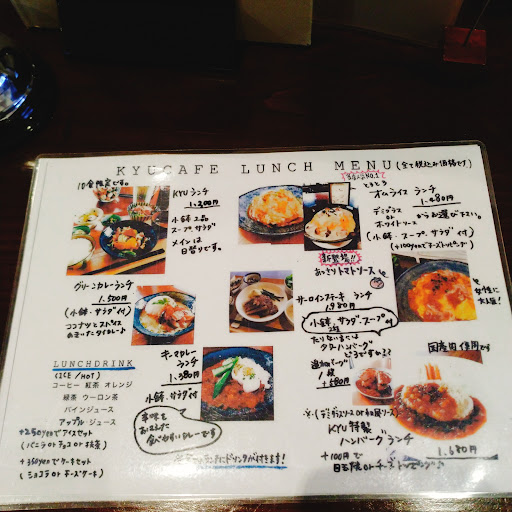 KYUCAFE LUNCH MENU (全て税込み価格です)
10食限定です。
KYU ランチ
1.200円
小鉢2品
スープ、サラダ
メインは
日替りです。
人気No.1
とろとろ
オムライス ランチ
1.480円
デミグラス
or
ホワイトソース
からお選び下さい。
(小鉢・スープ、サラダ付)
+100円でチーズトッピング
新登場!!
あっさりトマトソース
女性に
大人気!
グリーンカレーランチ
1.500円
(小鉢・サラダ付)
ココナツとスパイス
のきいたタイカレー♪
サーロインステーキ ランチ
1.980円
小鉢、サラダ、スープ付
たりない方には
ハンバーグ
どうですか?
追加ハンバーグ
1枚
+680円
キーマカレー
ランチ
1.380円
小鉢、サラダ付
辛味を
おさえた
食べやすいカレーです
国産肉使用です
(デミグラスソースor和風ソース)
KYU特製
ハンバーグランチ
1.680円
+100円で
目玉焼orチーズトッピング♪
LUNCH DRINK
(ICE / HOT)
コーヒー 紅茶 オレンジ
緑茶 ウーロン茶
パインジュース
アップルジュース
+250yenでアイスセット
(バニラorチョコor抹茶)
+350yenでケーキセット
(ショコラorチーズケーキ)
ランチにドリンクが付きます!